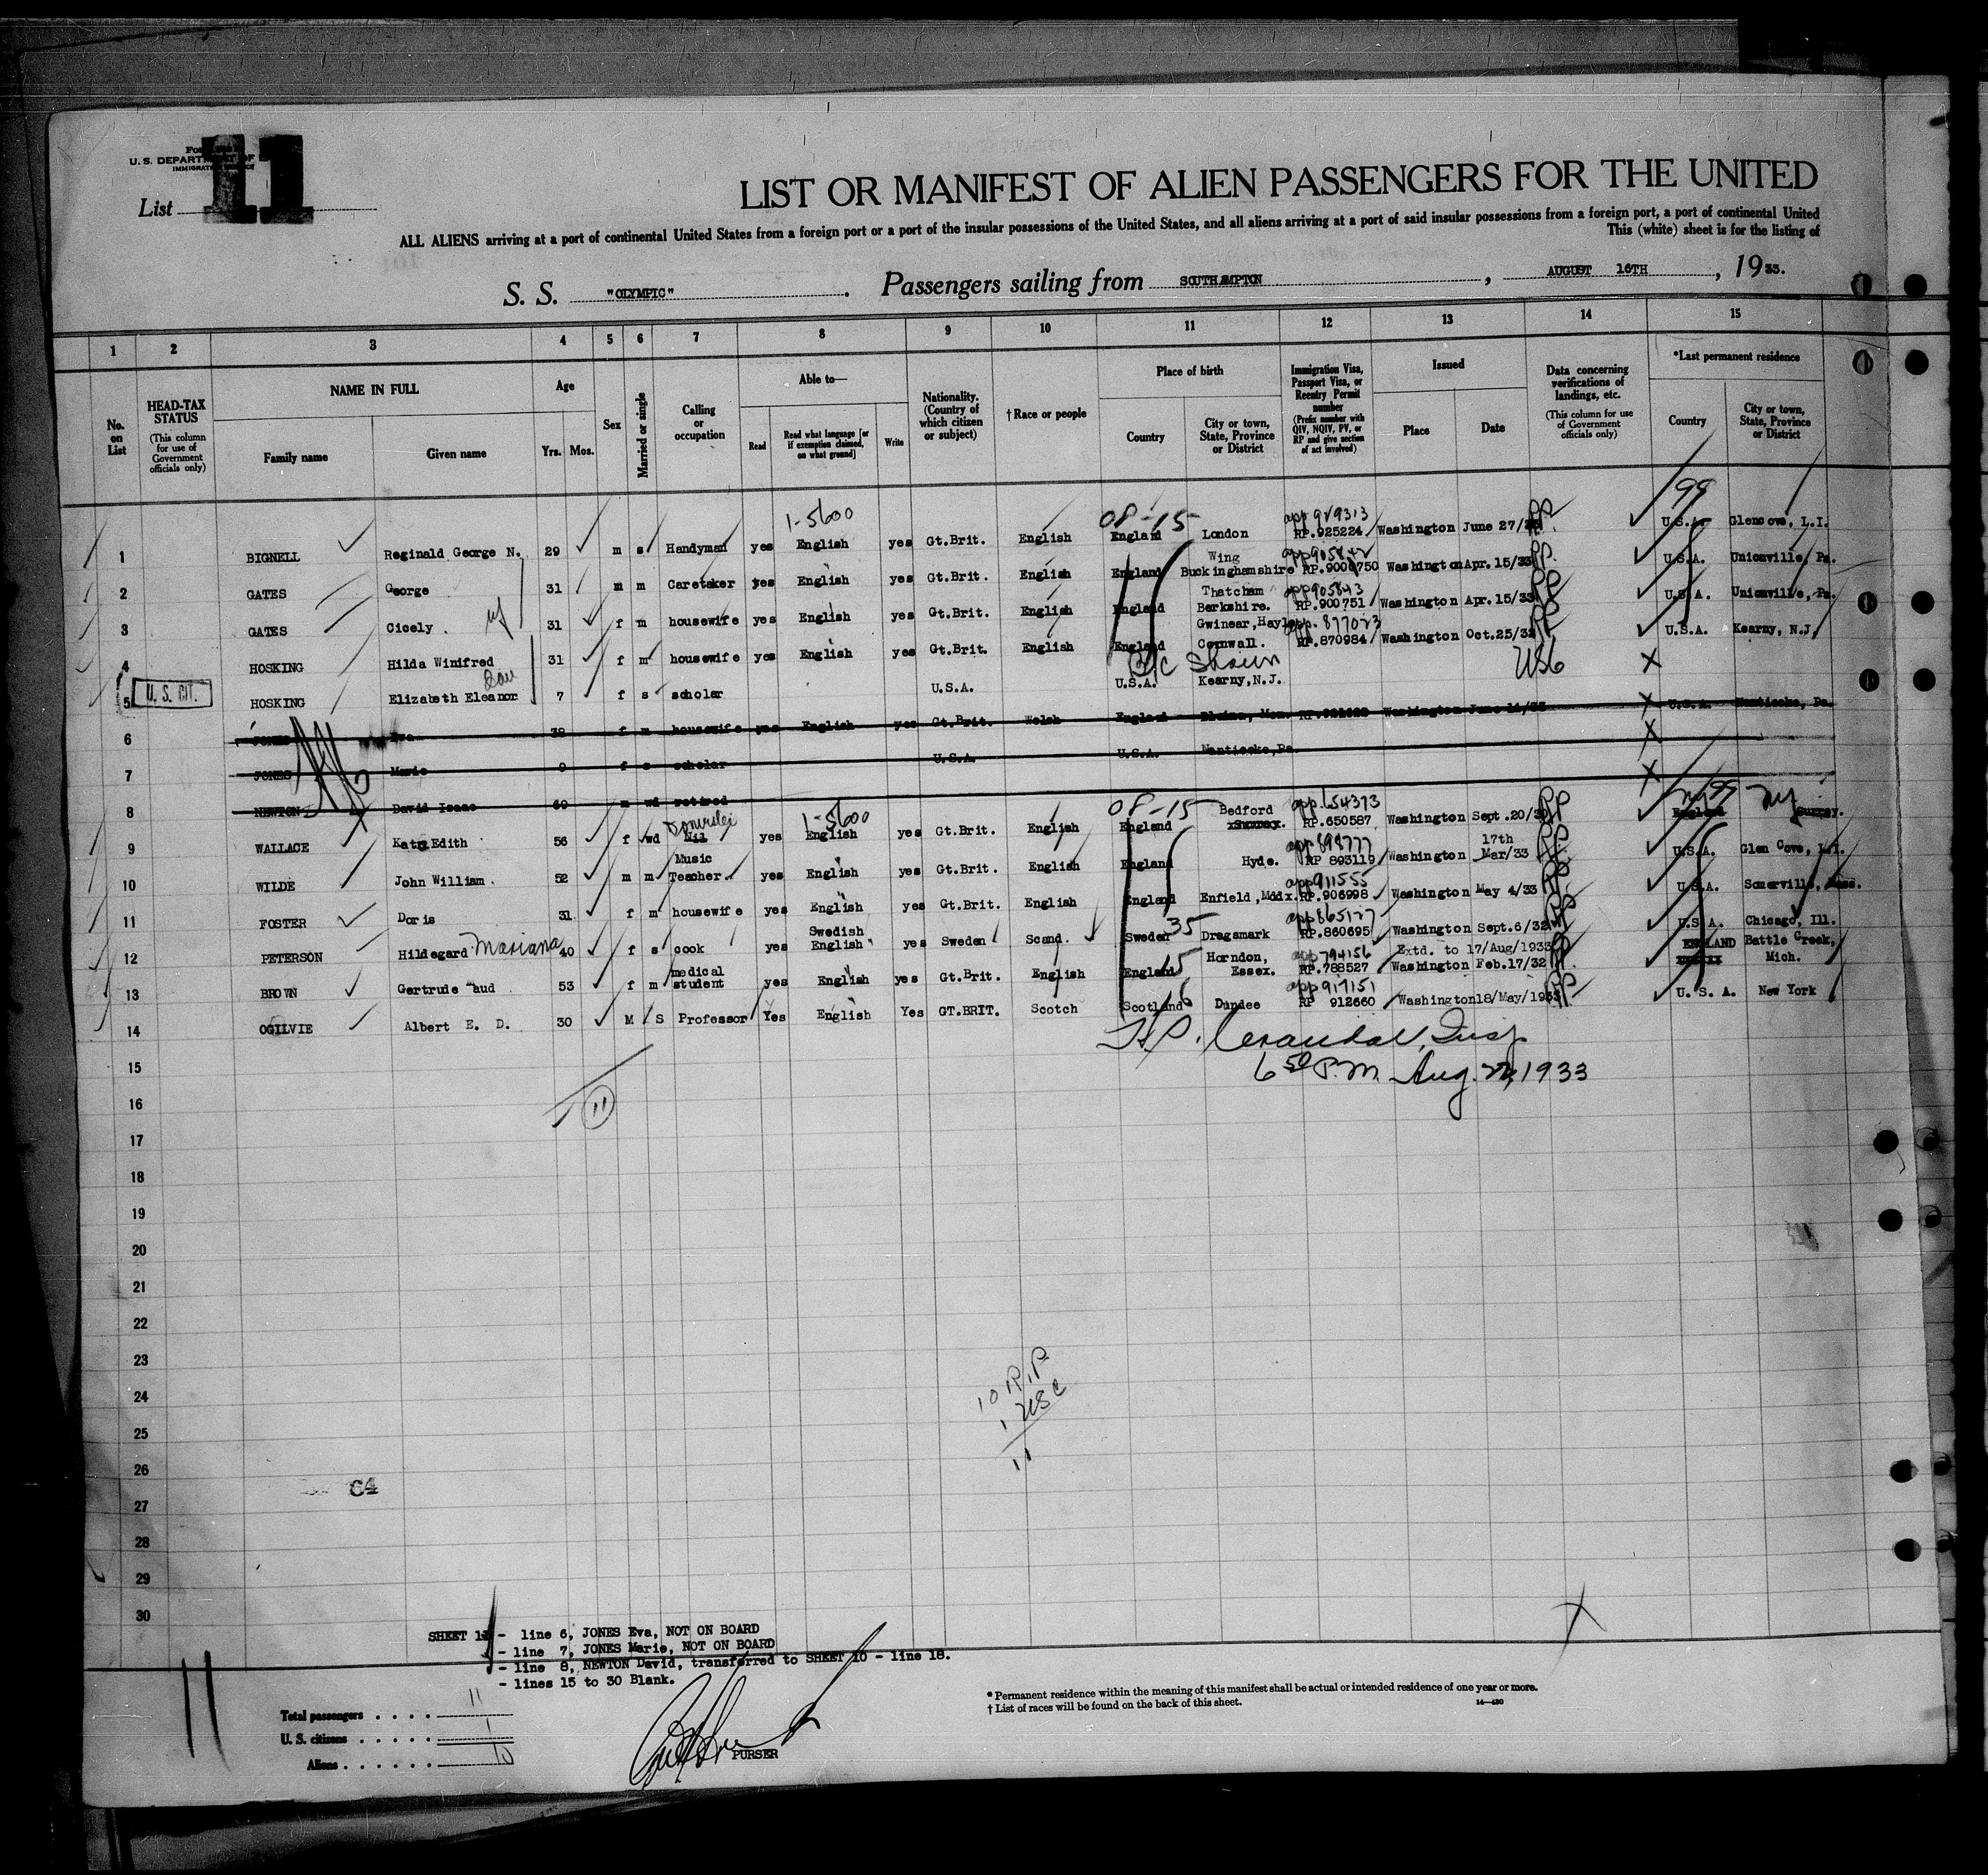 11
U. S. DEPARTMENT OF
List
LIST OR MANIFEST OF ALIEN PASSENGERS FOR THE UNITED
ALL ALIENS arriving at a port of continental United States from a foreign port or a port of the insular possessions of the United States, and all aliens arriving at a port of said insular possessions from a foreign port, a port of continental United
This (white) sheet is for the listing of
S. S. "OLYMPIC". Passengers sailing from SOUTHAMPTON, AUGUST 16TH, 1933.
1 2 3 4 5 6 7 8 9 10 11 12 13 14 15
No. on List
HEAD-TAX STATUS (This column for use of Government officials only)
NAME IN FULL
Family name Given name
Age
Yrs. Mos.
Sex
Married or single
Calling or occupation
Able to—
Read Read what language [or if exemption claimed, on what ground] Write
Nationality. (Country of which citizen or subject)
†Race or people
Place of birth
Country City or town, State, Province or District
Immigration Visa, Passport Visa, or Reentry Permit number (Prefix number with QIV, NQIV, PV, or RP and give section of act involved)
Issued
Place Date
Data concerning verifications of landings, etc. (This column for use of Government officials only)
*Last permanent residence
Country City or town, State, Province or District
1-5600 08-15 app 929313 99
1 BIGNELL Reginald George N. 29 m s Handyman yes English yes Gt.Brit. English England London RP.925224 Washington June 27/ RP. U.S.A. Glencove, L.I.
app 905842
2 GATES George 31 m m Caretaker yes English yes Gt.Brit. English England Wing Buckinghamshire RP.9000750 Washington Apr. 15/33 RP. U.S.A. Unionville, Pa.
app 905843
3 GATES Cicely wf 31 f m housewife yes English yes Gt.Brit. English England Thatcham Berkshire. RP.900751 Washington Apr. 15/33 RP U.S.A. Unionville, Pa.
app. 877023
4 HOSKING Hilda Winifred 31 f m housewife yes English yes Gt.Brit. English England Gwinear, Hayle Cornwall. RP.870984 Washington Oct.25/32 RP U.S.A. Kearny, N.J.
B/C Shown
5 U. S. CIT. HOSKING Elizabeth Eleanor dau 7 f s scholar U.S.A. U.S.A. Kearny, N.J. USC X
6 JONES Eva 38 f m housewife yes English yes Gt.Brit. Welsh England Washington June U.S.A. Nanticoke, Pa. X
7 JONES Marie 9 f s scholar U.S.A. U.S.A. Nanticoke, Pa. X
8 NEWTON David Isaac 69 m wd retired X
1-5600 08-15 app. 654373 99 NY
9 WALLACE Kate Edith 56 f wd Nil Domestic yes English yes Gt.Brit. English England Bedford Surrey. RP.650587 Washington Sept.20/30 RP England Surrey.
app 898777
10 WILDE John William. 52 m m Music Teacher. yes English yes Gt.Brit. English England Hyde. RP 893119 Washington 17th Mar/33 RP. U.S.A. Glen Cove, L.I.
app 911555
11 FOSTER Doris 31 f m housewife yes English yes Gt.Brit. English England Enfield, Mddx. RP.906998 Washington May 4/33 RP. U.S.A. Somerville, Mass.
app 865177
12 PETERSON Hildegard Mariana 40 f s cook yes Swedish English yes Sweden Scand. Sweden 35 Dragsmark RP.860695 Washington Sept.6/32 RP U.S.A. Chicago, Ill.
app 794156
13 BROWN Gertrude aud 53 f m medical student yes English yes Gt.Brit. English England 15 Horndon, Essex. RP.788527 Extd. to 17/Aug/1933 Washington Feb.17/32 RP ENGLAND Battle Creek, Mich.
app 917151
14 OGILVIE Albert E. D. 30 M S Professor Yes English Yes GT.BRIT. Scotch Scotland 16 Dundee RP 912660 Washington 18/May/1933 RP U. S. A. New York
H.P. Crandall, Insp
15
6 50 P.M. Aug. 22, 1933
16
11
17
18
19
20
21
22
23
24
25
26
27
28
29
30
10 R.P.
1 USC
11
C4
SHEET 11 - line 6, JONES Eva, NOT ON BOARD
- line 7, JONES Marie, NOT ON BOARD
- line 8, NEWTON David, transferred to SHEET 10 - line 18.
- lines 15 to 30 Blank.
11
Total passengers . . . . 11
U. S. citizens . . . . . 1
Aliens . . . . . . 10
PURSER
* Permanent residence within the meaning of this manifest shall be actual or intended residence of one year or more.
† List of races will be found on the back of this sheet. 14—430